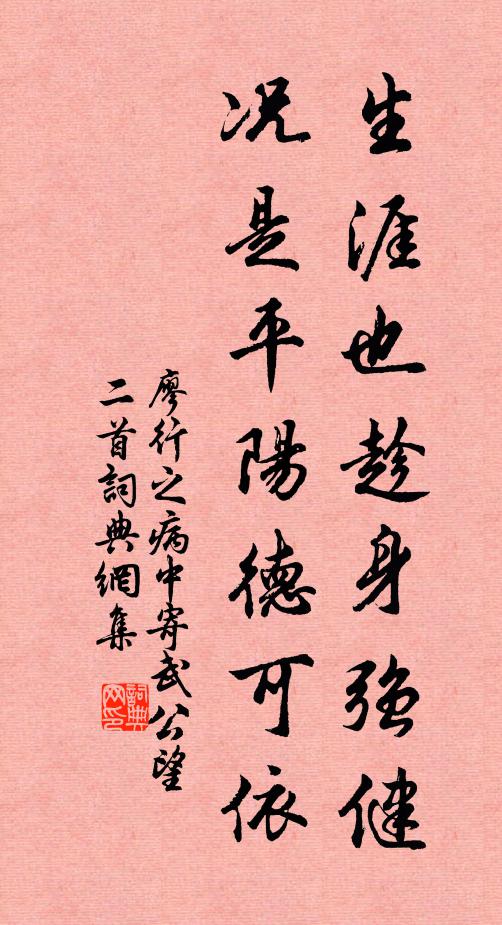 生涯也趁身強健
況是平陽德可依
廖行之病中寄武公望
二首詞典網集
詞典
网印